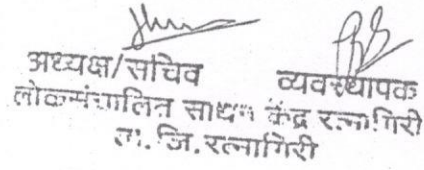 अध्यक्ष/सचिव व्यवस्थापक
लोकसंचालित साधन केंद्र रत्नागिरी
ता. जि. रत्नागिरी